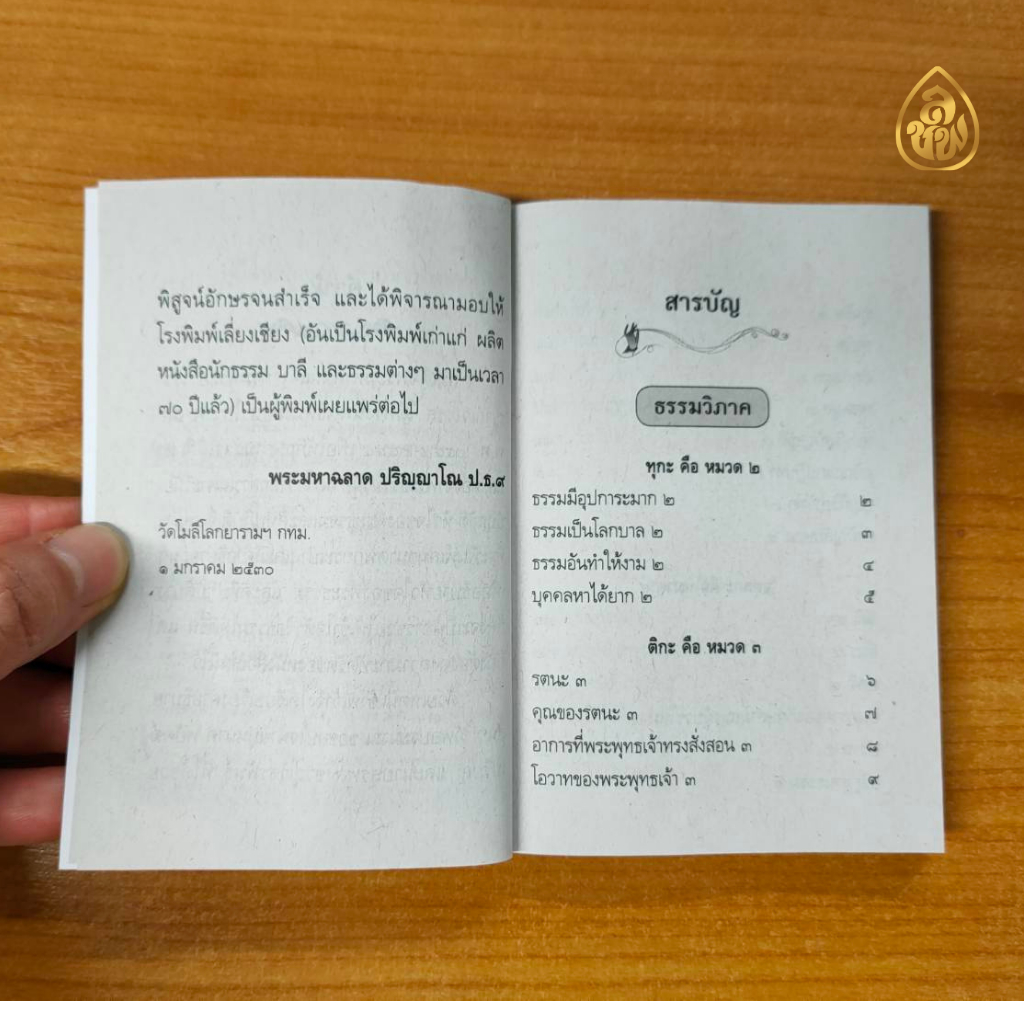 พิสูจน์อักษรจนสำเร็จ และได้พิจารณามอบให้
โรงพิมพ์เลี่ยงเชียง (อันเป็นโรงพิมพ์เก่าแก่ ผลิต
หนังสือนักธรรม บาลี และธรรมต่างๆ มาเป็นเวลา
๗๐ ปีแล้ว) เป็นผู้พิมพ์เผยแพร่ต่อไป
พระมหาฉลาด ปริญฺญาโณ ป.ธ.๙
วัดโมลีโลกยารามฯ กทม.
๑ มกราคม ๒๕๓๐
สารบัญ
ธรรมวิภาค
ทุกะ คือ หมวด ๒
ธรรมมีอุปการะมาก ๒ ๒
ธรรมเป็นโลกบาล ๒ ๓
ธรรมอันทำให้งาม ๒ ๔
บุคคลหาได้ยาก ๒ ๕
ติกะ คือ หมวด ๓
รตนะ ๓ ๖
คุณของรตนะ ๓ ๗
อาการที่พระพุทธเจ้าทรงสั่งสอน ๓ ๘
โอวาทของพระพุทธเจ้า ๓ ๙